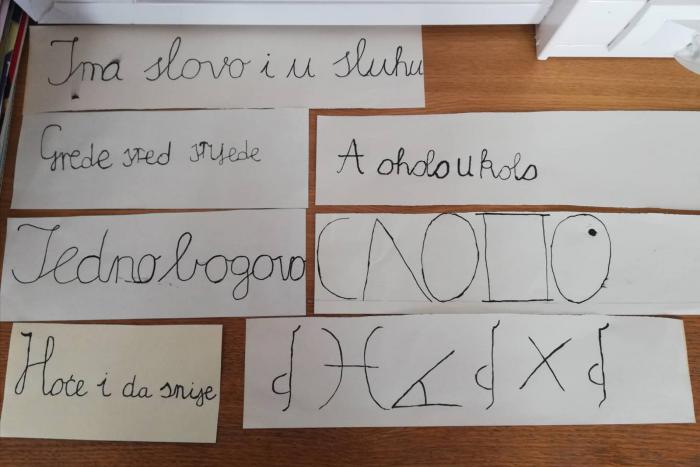 Ima slovo i u sluhu
Grede sred srijede
A oholo u kolo
Jedno bogovo
СЛОВО
Hoće i da snije